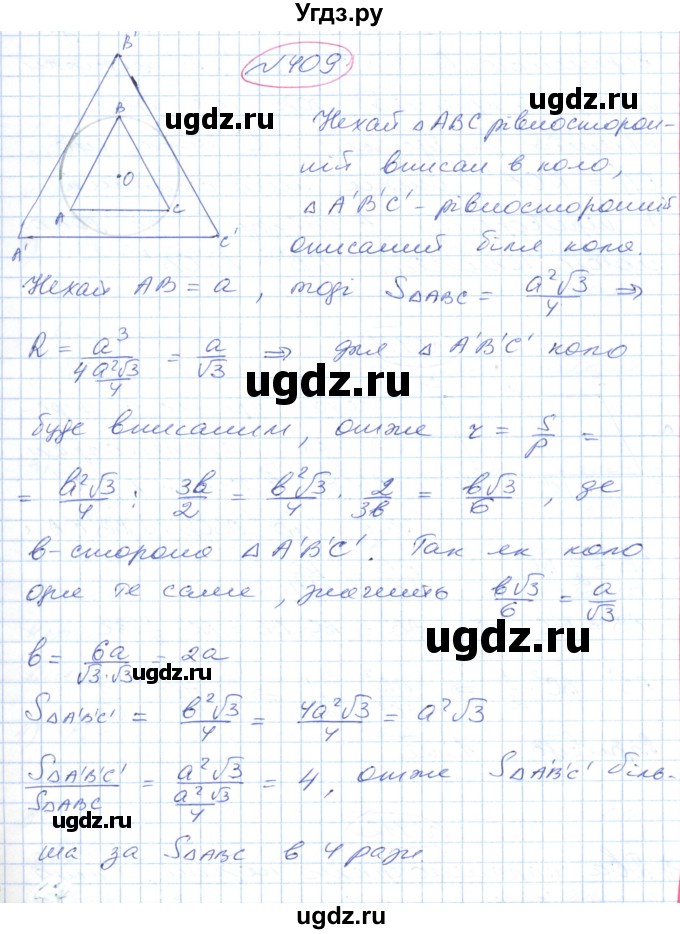 Угдз.ру
№409
B'
B
O
A
C
A'
C'
ugdz.ru
Нехай △ABC рівносторон-
ній вписан в коло,
△A'B'C' - рівносторонній
описаний біля кола.
Нехай AB = a, тоді S△ABC = a²√3/4 ⇒
ugdz.ru
R = a³/(4 a²√3/4) = a/√3 ⇒ для △A'B'C' коло
ugdz.ru
буде вписаним, отже r = S/p =
= b²√3/4 : 3b/2 = b²√3/4 · 2/3b = b√3/6, де
ugdz.ru
ugdz.ru
в-сторона △A'B'C'. Так як коло
одне те саме, значить b√3/6 = a/√3
ugdz.ru
b = 6a/(√3·√3) = 2a
ugdz.ru
S△A'B'C' = b²√3/4 = 4a²√3/4 = a²√3
S△A'B'C'/S△ABC = a²√3/(a²√3/4) = 4, отже S△A'B'C' біль-
ugdz.ru
ugdz.ru
ша за S△ABC в 4 рази.
ugdz.ru